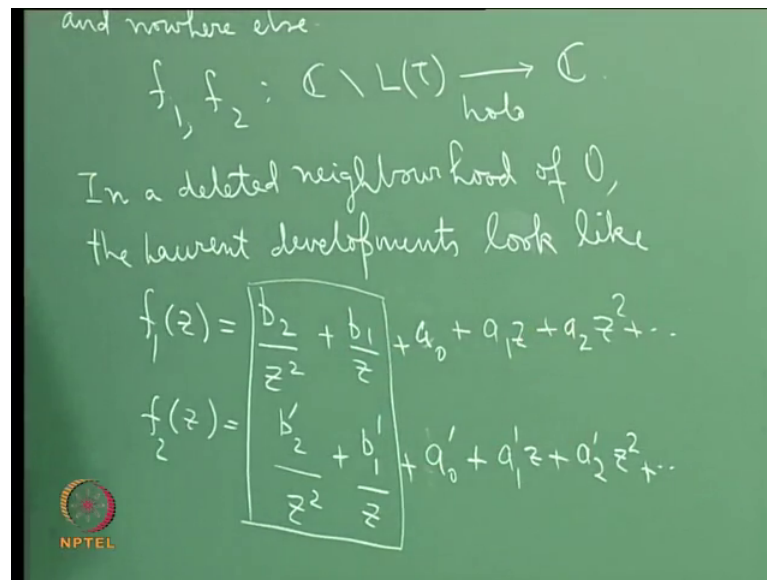 and nowhere else.
f₁, f₂ : ℂ \ L(τ) ⟶ ℂ.
holo
In a deleted neighbourhood of 0,
the Laurent developments look like
f₁(z) = b₂/z² + b₁/z + a₀ + a₁z + a₂z² + ...
f₂(z) = b₂'/z² + b₁'/z + a₀' + a₁'z + a₂'z² + ...
NPTEL